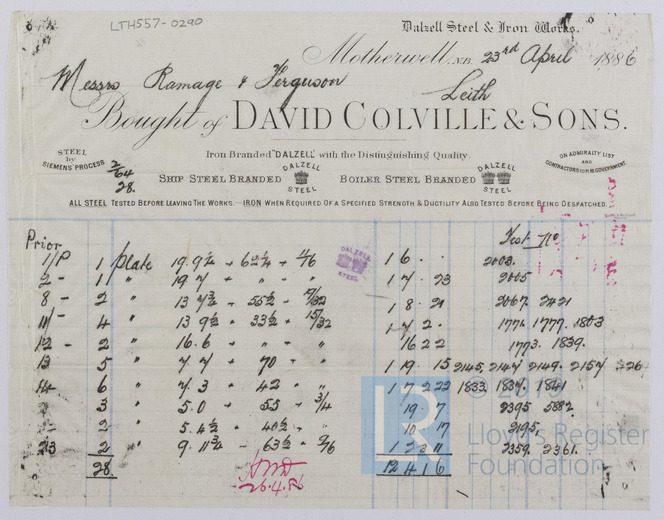 LTH557-0290
Dalzell Steel & Iron Works.
Motherwell, N.B. 23rd April 1886
Messrs Ramage & Ferguson
Leith
Bought of DAVID COLVILLE & SONS.
Iron Branded "DALZELL" with the Distinguishing Quality.
STEEL by SIEMENS' PROCESS
2/64
28.
SHIP STEEL BRANDED DALZELL STEEL BOILER STEEL BRANDED DALZELL STEEL
ON ADMIRALTY LIST AND CONTRACTORS FOR H.M. GOVERNMENT.
ALL STEEL TESTED BEFORE LEAVING THE WORKS. IRON WHEN REQUIRED OF A SPECIFIED STRENGTH & DUCTILITY ALSO TESTED BEFORE BEING DESPATCHED.
Prior Test No
1/P 1 plate 19.9½ 62½ 1 6 . . 2003.
DALZELL STEEL
2 - 1 " 19.7 " " 1 7 . 23 2005
8 - 2 " 13 7¾ 55½ 17/32 1 8 . 21 2067. 2421
11/- 4 " 13 9½ 33½ 15/32 1 7 2 . 1777. 1803
12 - 2 " 16.6 " " 16 2 2 1773. 1839.
13 5 " 7.7 70 " 1 19 . 15 2145. 2147 2149. 2157 226
14 6 " 7.3 42 " 1 7 2 22 1833. 1837. 1841
3 " 5.0 55 3/4 19 7 2395 5882
2 " 5.4½ 40½ " 10 17 2195.
23 2 " 9.11¾ 63½ 2359. 2361.
28. 12 4 1 6
26.4.86
© 2019
LR
Lloyd's Register
Foundation